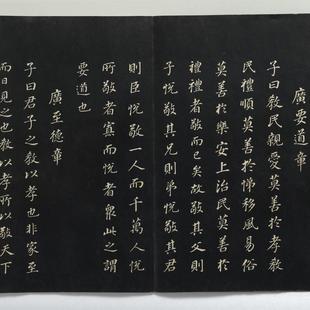 廣要道章
子曰教民親愛莫善於孝教
民禮順莫善於悌移風易俗
莫善於樂安上治民莫善於
禮禮者敬而已矣故敬其父則
子悅敬其兄則弟悅敬其君
則臣悅敬一人而千萬人悅
所敬者寡而悅者衆此之謂
要道也
廣至德章
子曰君子之教以孝也非家至
而日見之也教以孝所以敬天下